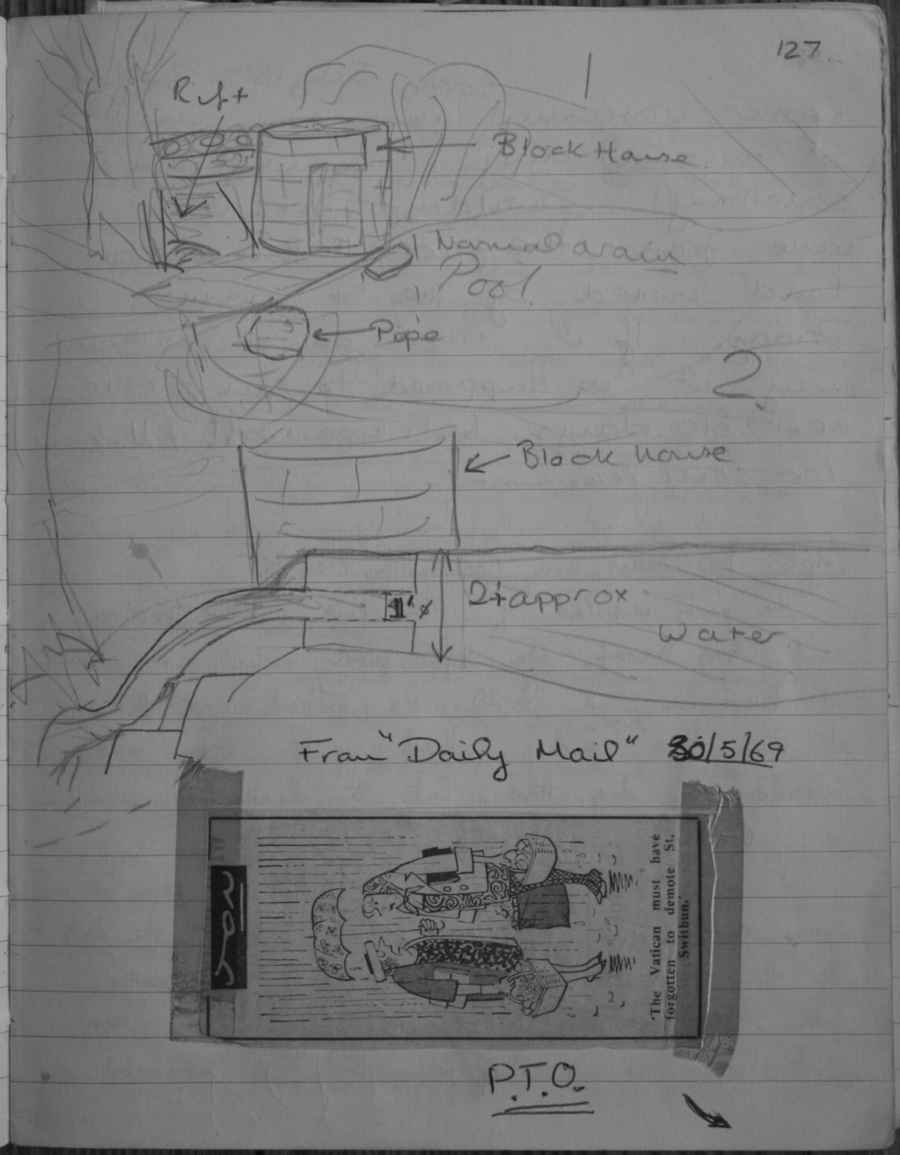 127
1
Block House
Normal drain
Pool
Pipe
2
Block house
1'
2ft approx
Water
From "Daily Mail" 30/5/69
JON
'The Vatican must have
forgotten to demote St.
Swithun.'
P.T.O.